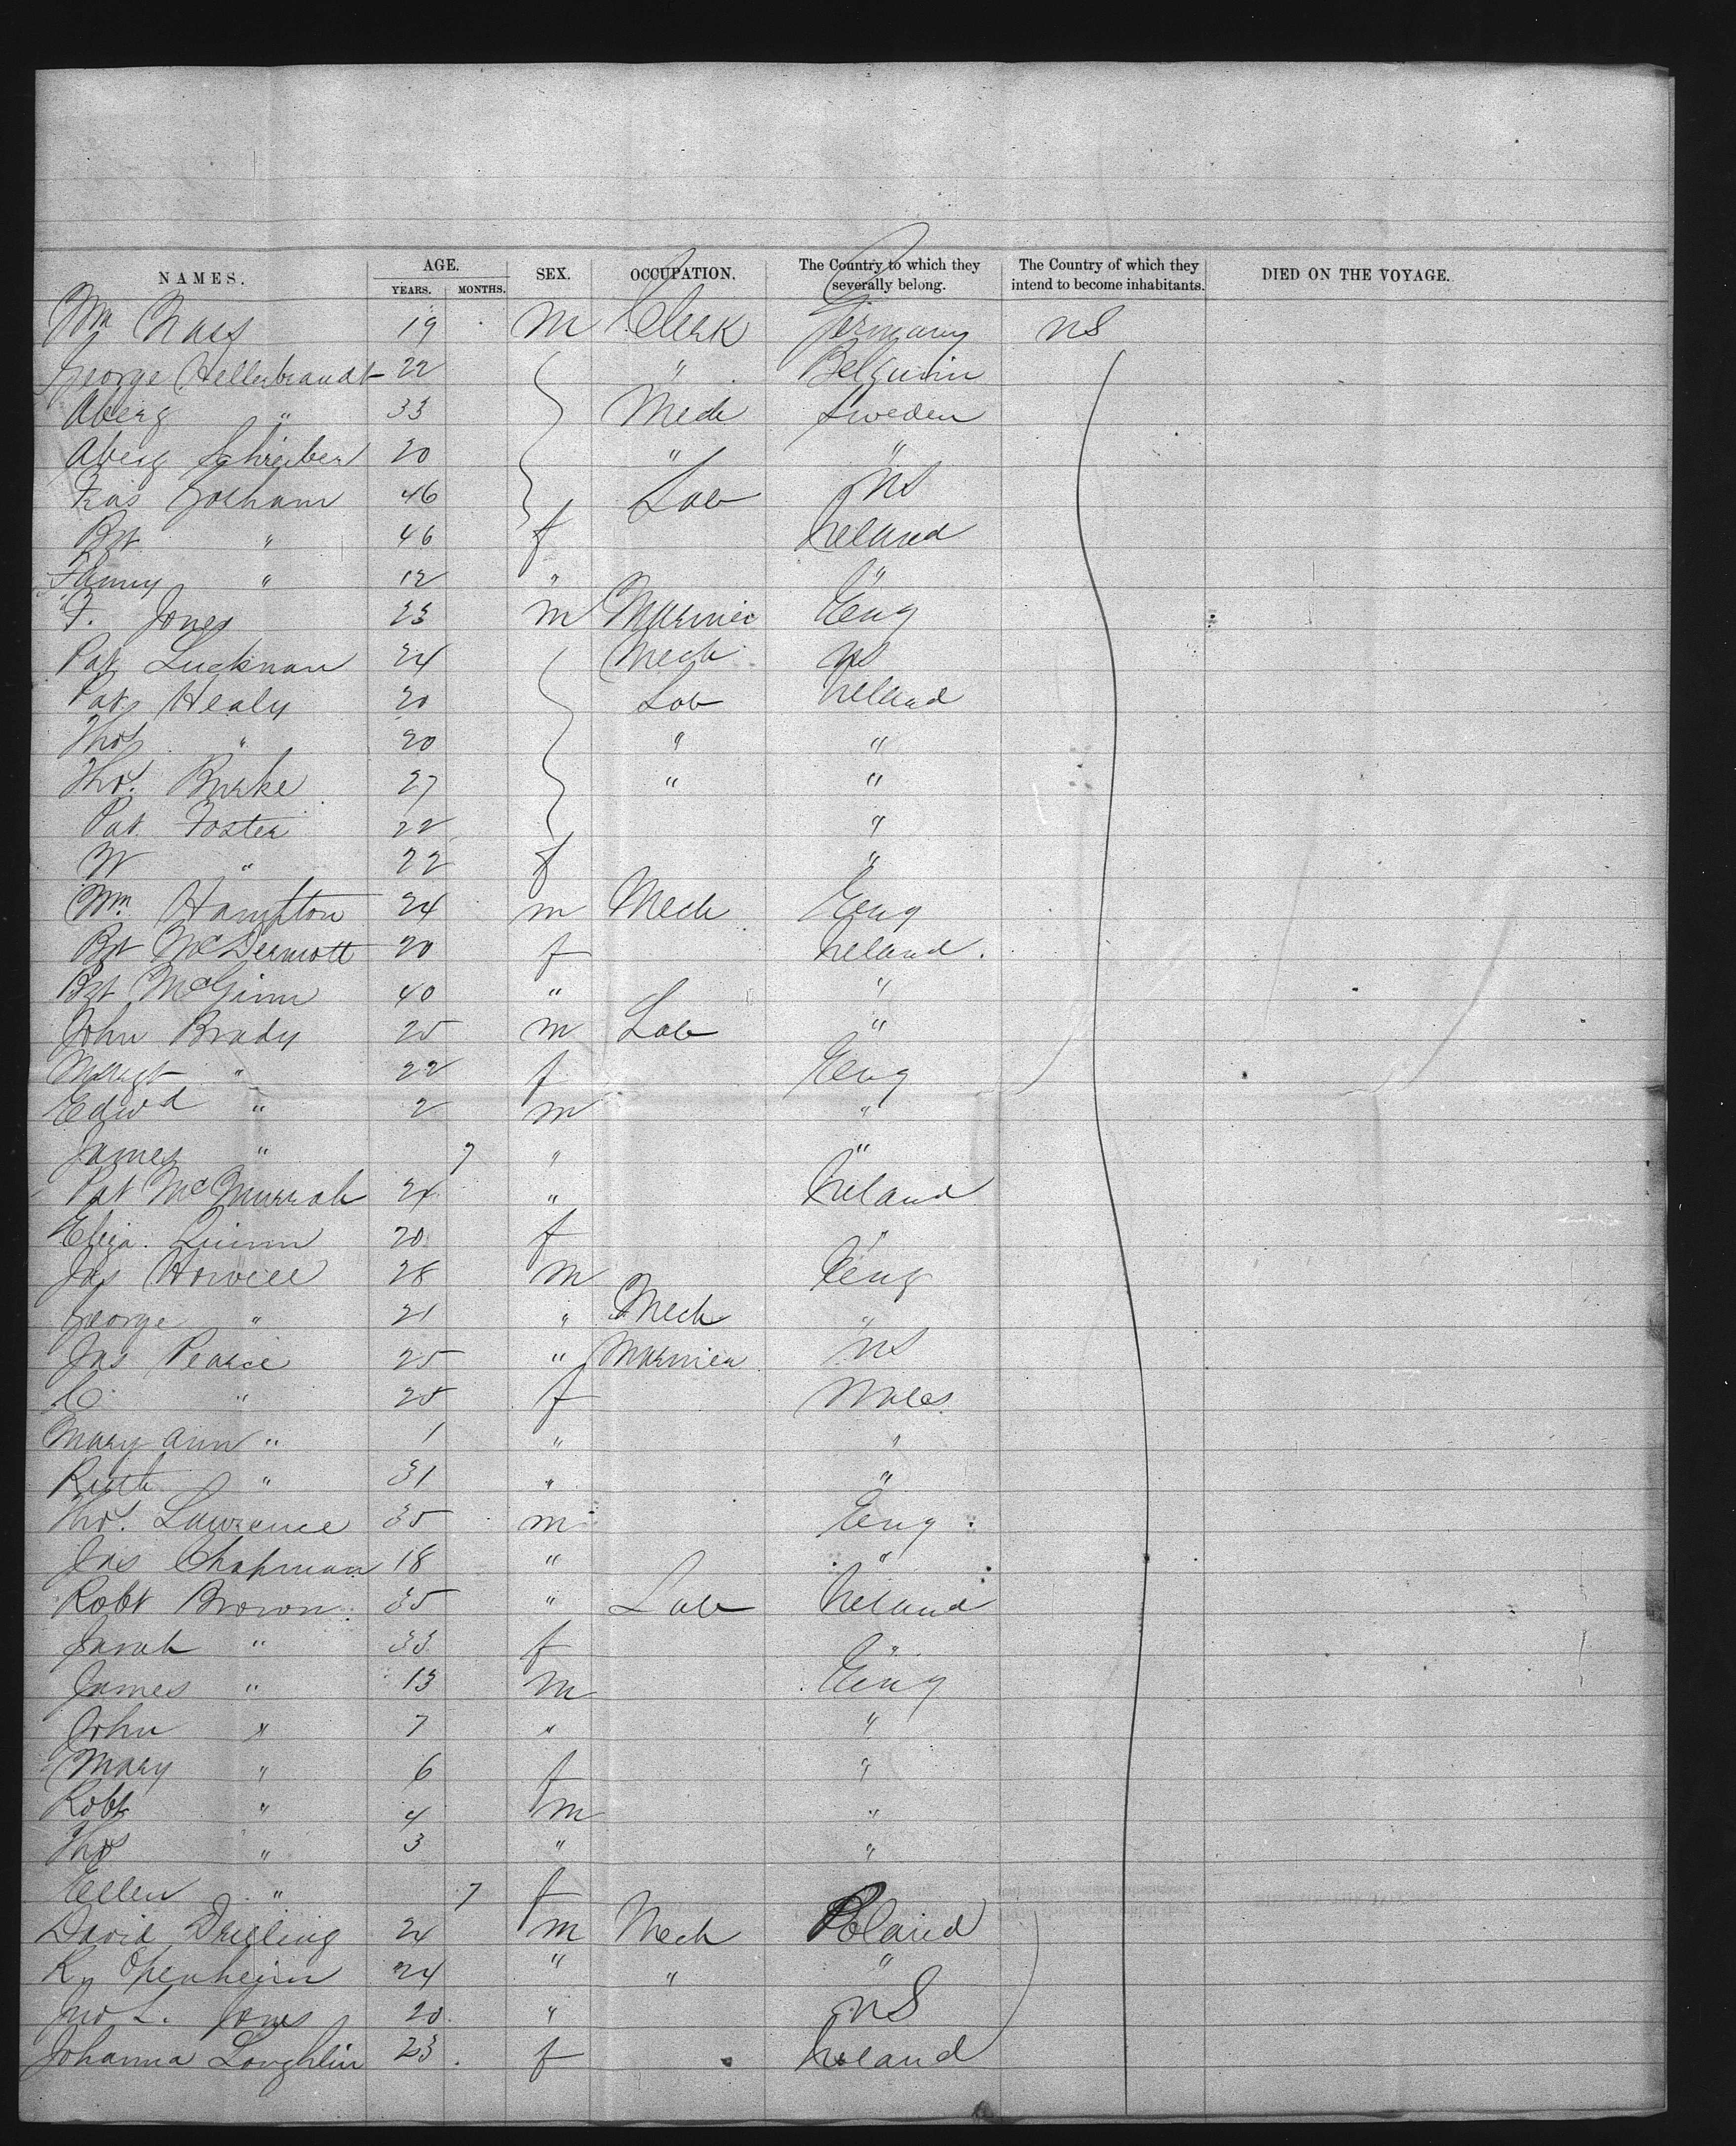 NAMES. AGE. SEX. OCCUPATION. The Country to which they severally belong. The Country of which they intend to become inhabitants. DIED ON THE VOYAGE.
YEARS. MONTHS.
Wm 19 m Clerk Germany US
George Hellerbrandt 22 " Belguim
Aberg " 33 Mech Sweden
Aberg Schreiber 20 " "
Fras Gorham 46 Lab US
Bgt " 46 f Ireland
Fanny " 12 " "
F. Jones 23 m Marnier Eng
Pat Lucknan 24 Mech US
Pat Healy 20 Lab Ireland
Thos " 20 " "
Thos. Burke 27 " "
Pat Foster 22 "
W " 22 f "
Wm Hampton 24 m Mech Eng
Bgt McDermott 20 f Ireland.
Bgt McGinn 40 " "
John Brady 25 m Lab "
Margt " 22 f Eng
Edwd " 2 m "
James " 7 " "
Pat McMurrah 24 " Ireland
Eliza. Quinn 20 f "
Jas 28 m Eng
George " 21 " Mech "
Jas Pearce 25 " Marnier US
C. " 25 f Wales
Mary Ann " 1 " "
Ruth " 31 " "
Thos. Lawrence 35 m Eng
Jas Chapman 18 " "
Robt Brown 35 " Lab Ireland
Sarah " 33 f "
James " 13 m Eng
John " 7 " "
Mary " 6 f "
Robt " 4 m "
Thos " 3 " "
Ellen " 7 f
David 24 m Mech Poland
R. Openheim 24 " " "
Jno L. Jones 20 " US
Johanna Loughlin 23 f Ireland